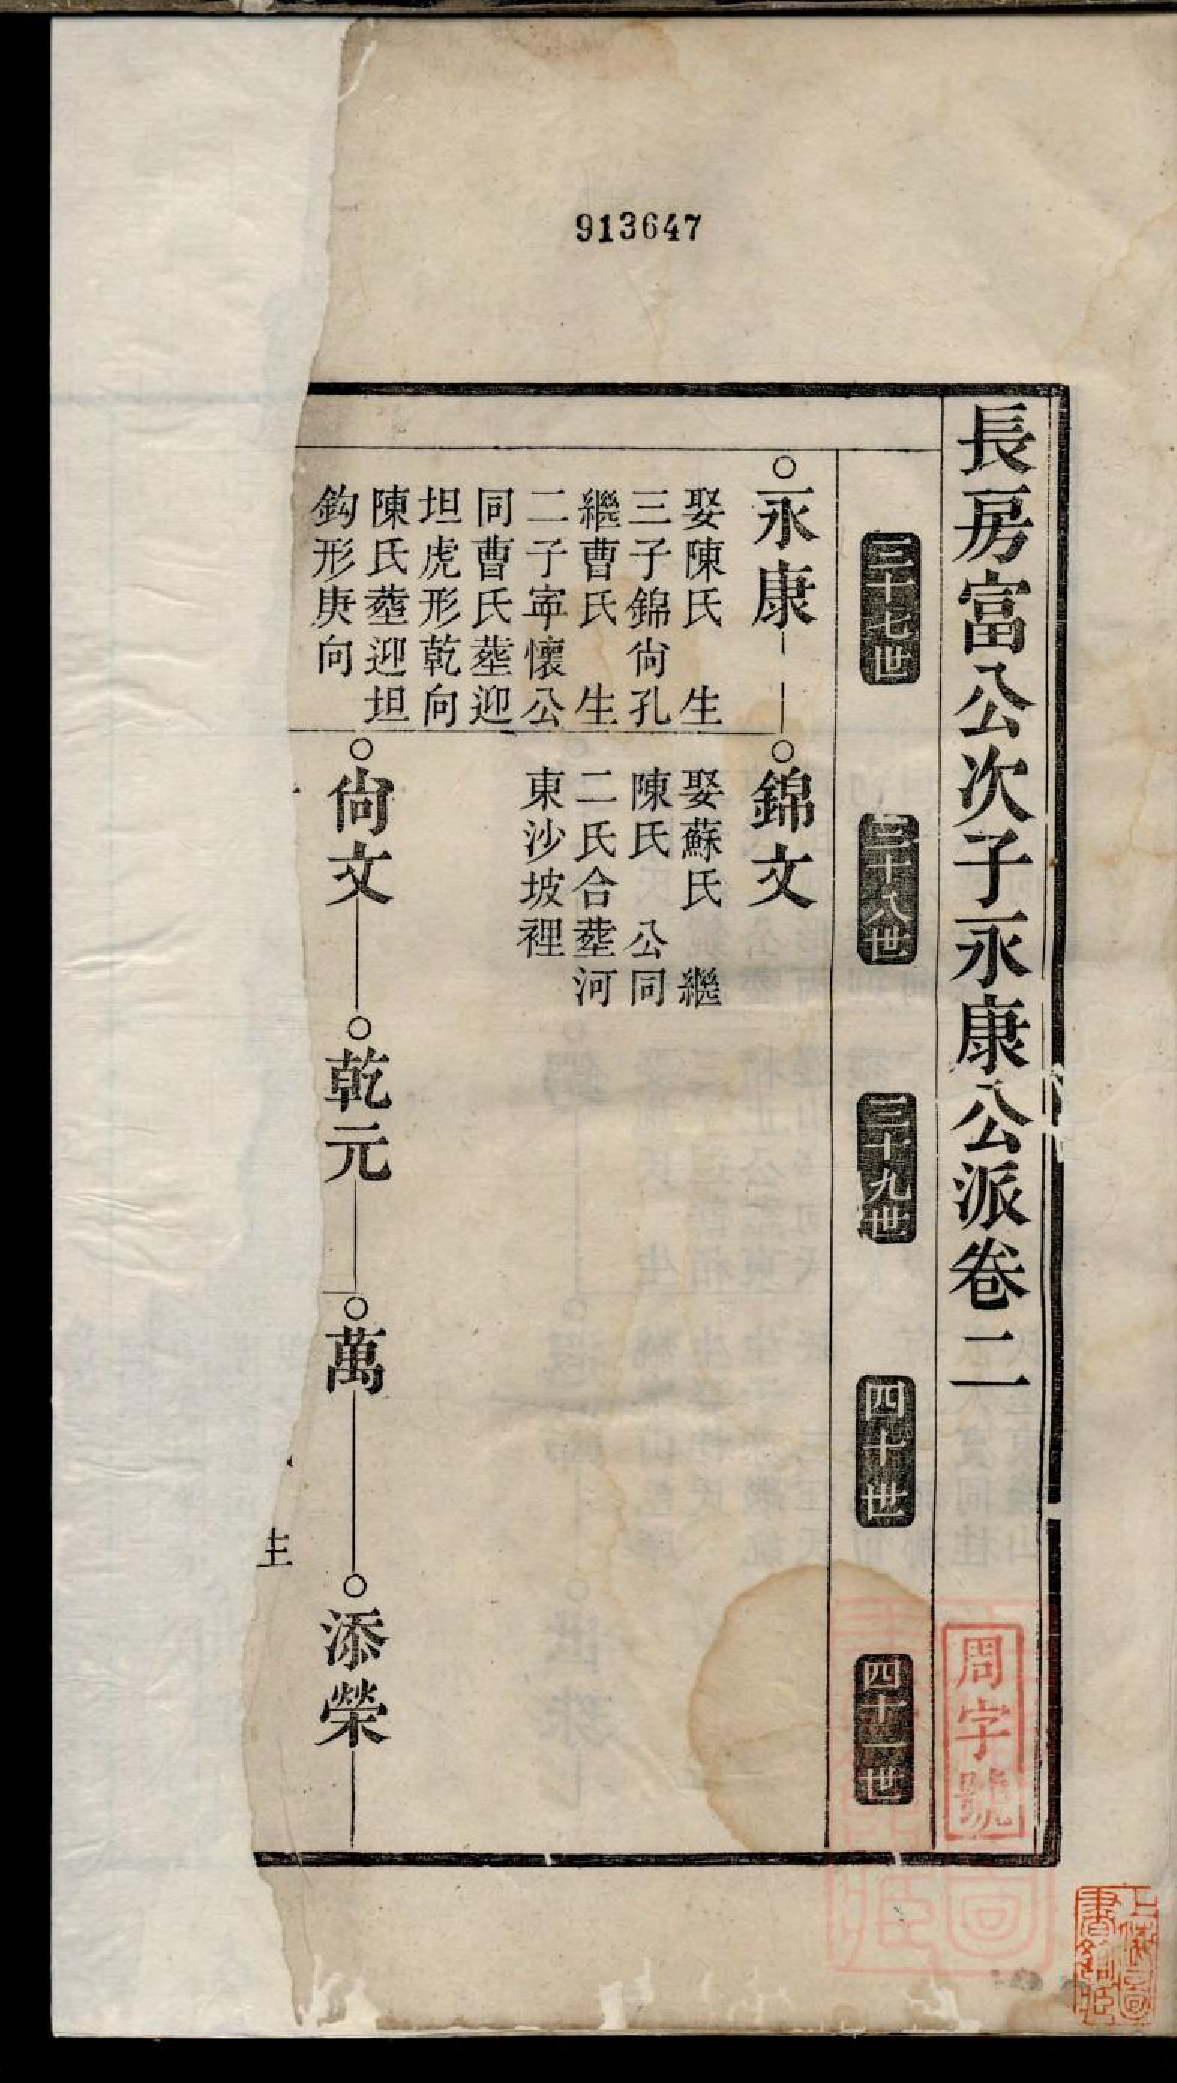 913647
長房富公次子永康公派卷二
周字號
三十七世
三十八世
三十九世
四十世
四十一世
永康
娶陳氏 生
三子錦尙孔
繼曹氏 生
二子寧懷公
同曹氏塟迎
坦虎形乾向
陳氏塟迎坦
鈎形庚向
錦文
娶蘇氏 繼
陳氏 公同
二氏合塟河
東沙坡裡
尙文
乾元
萬
添榮
生
上海圖
書館藏